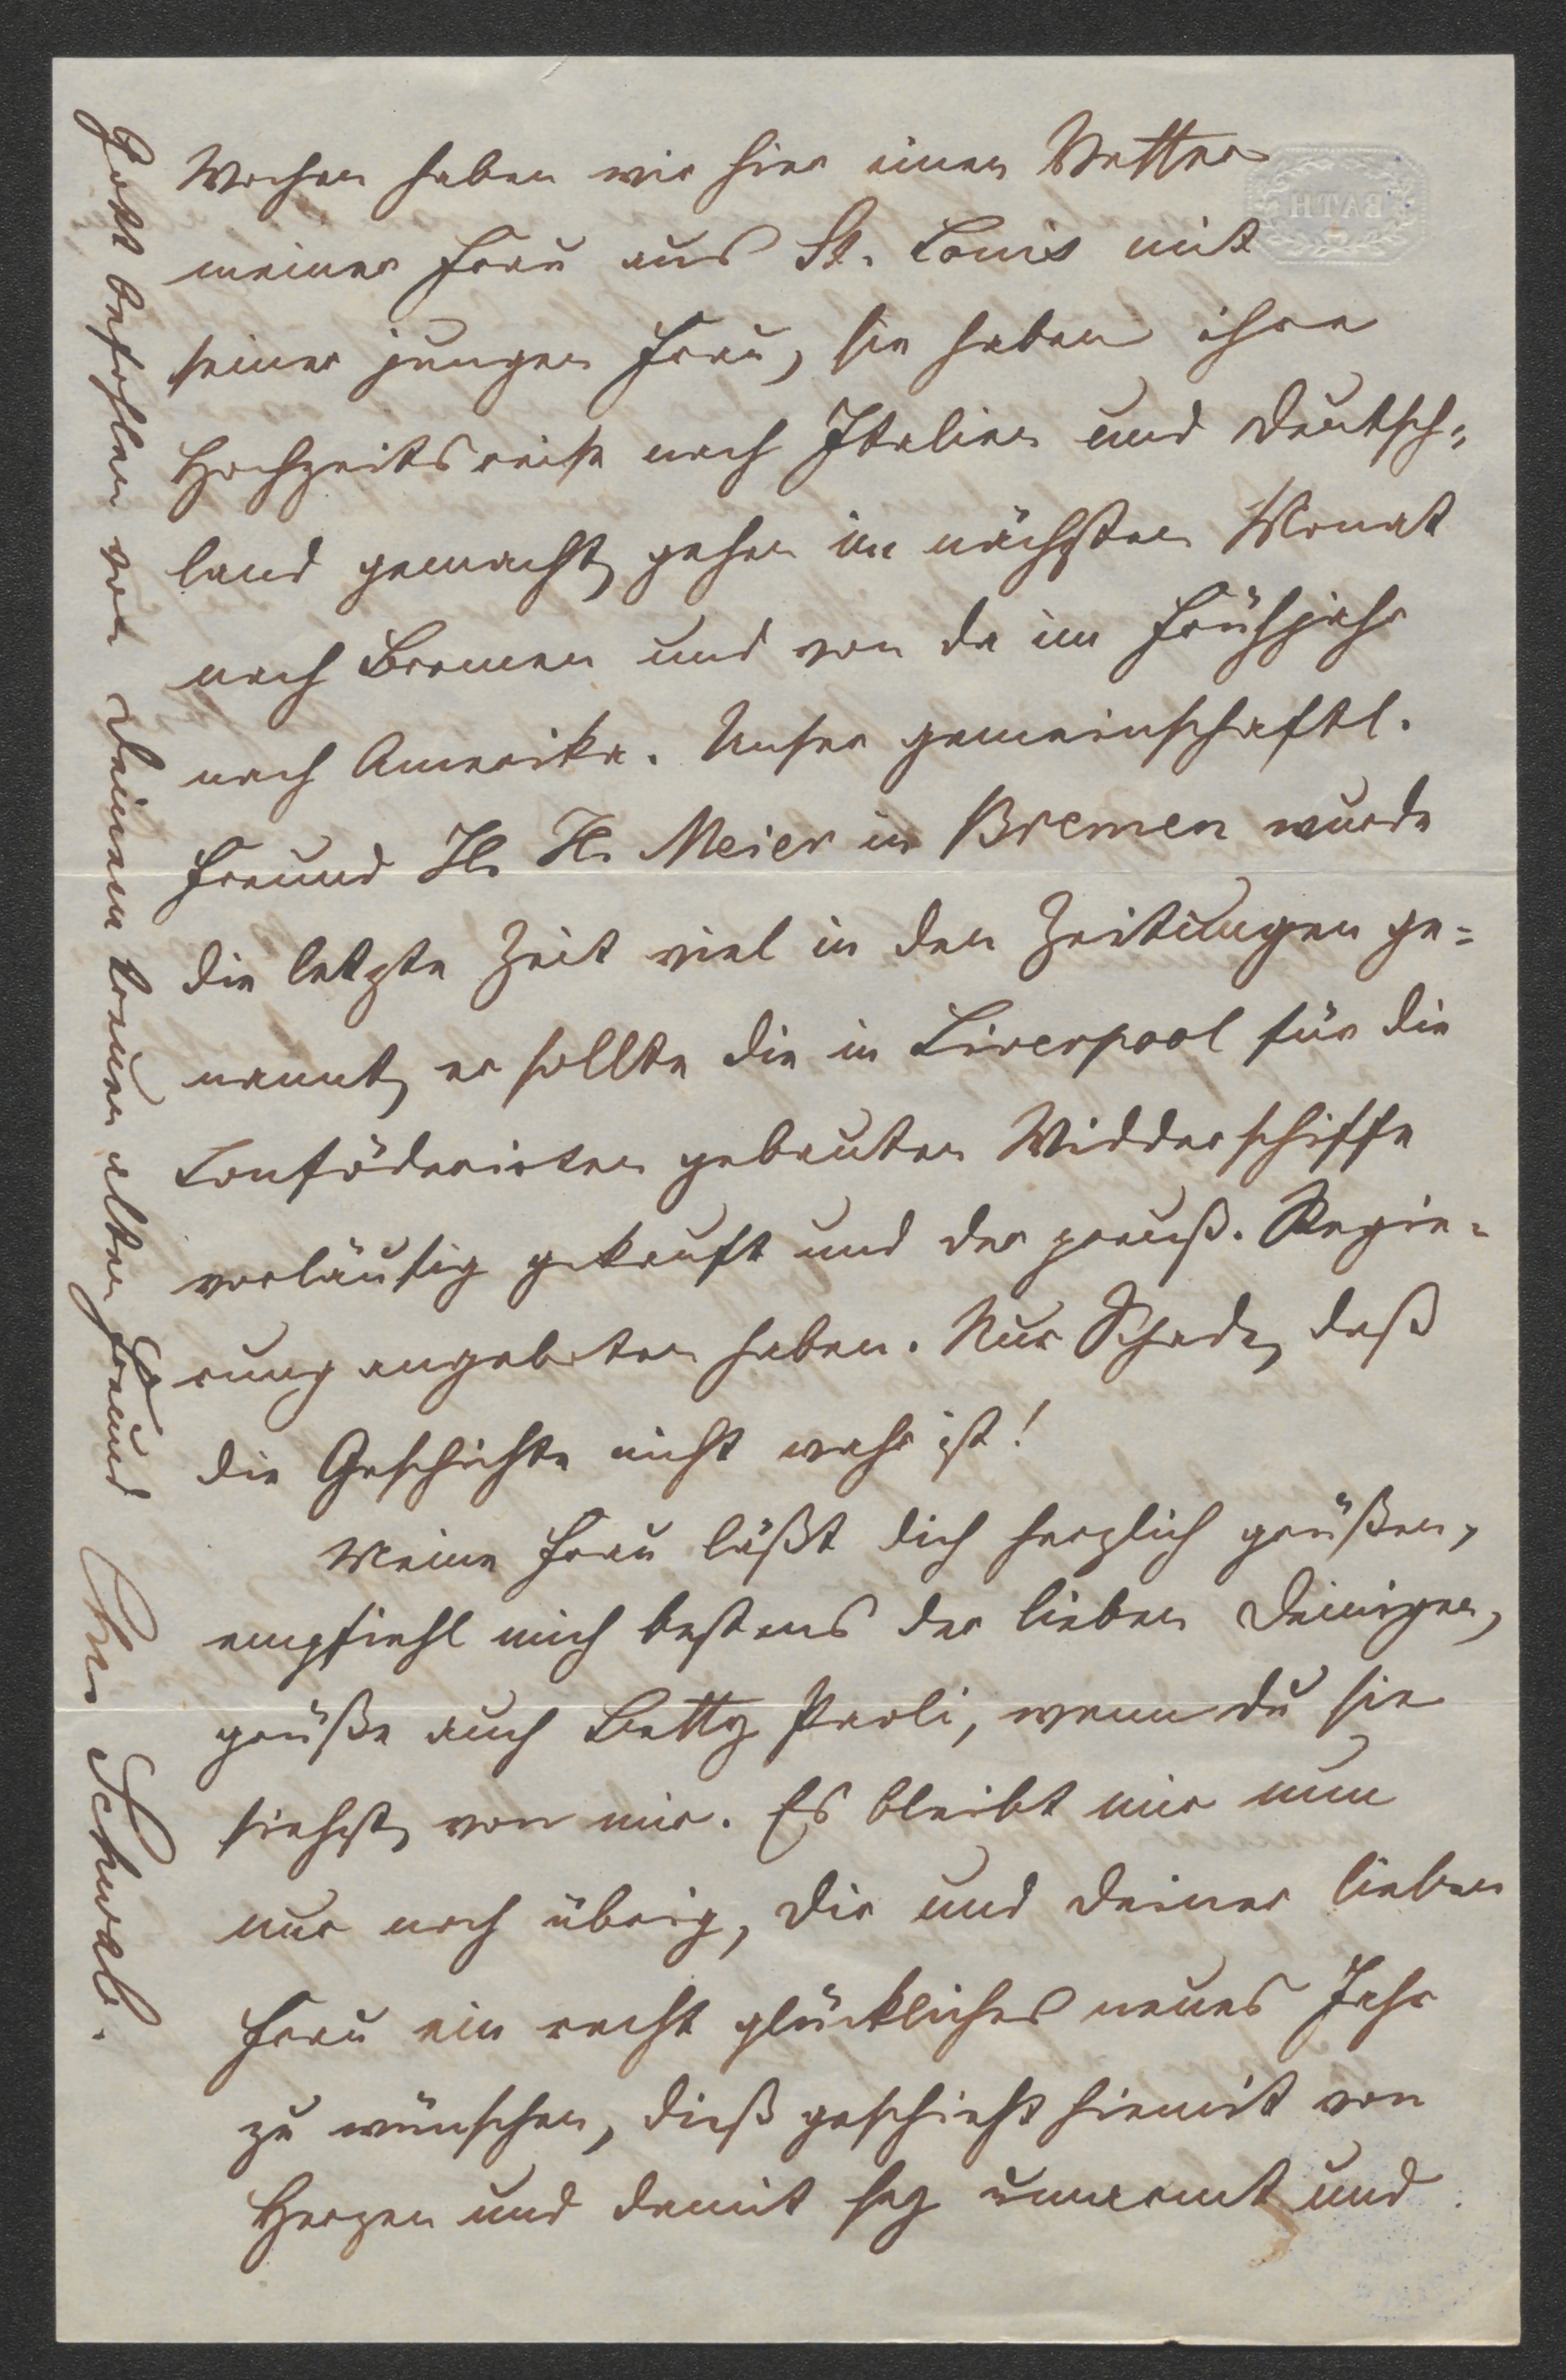 Wochen haben wir hier einen Vetter
meiner Frau aus St. Louis mit
seiner jungen Frau, sie haben ihre
Hochzeitsreise nach Italien und Deutsch=
land gemacht, gehen im nächsten Monat
nach Bremen und von da im Frühjahr
nach Amerika. Unser gemeinschaftl.
Freund H. H. Meier in Bremen wurde
die letzte Zeit viel in den Zeitungen ge=
nannt, er sollte die in Liverpool für die
Conföderirten gebauten Widderschiffe
vorläufig gekauft und der preuß. Regie=
rung angeboten haben. Nur Schade, daß
die Geschichte nicht wahr ist!
Meine Frau läßt dich herzlich grüßen,
empfiehl mich bestens der lieben Deinigen,
grüße auch Betty Paoli, wenn du sie
siehst, von mir. Es bleibt mir nun
nur noch übrig, Dir und Deiner lieben
Frau ein recht glückliches neues Jahr
zu wünschen, dieß geschieht hiemit von
Herzen und damit sey umarmt und
Gott befohlen von Deinem treuen alten Freund
Chr Schwab.
BATH